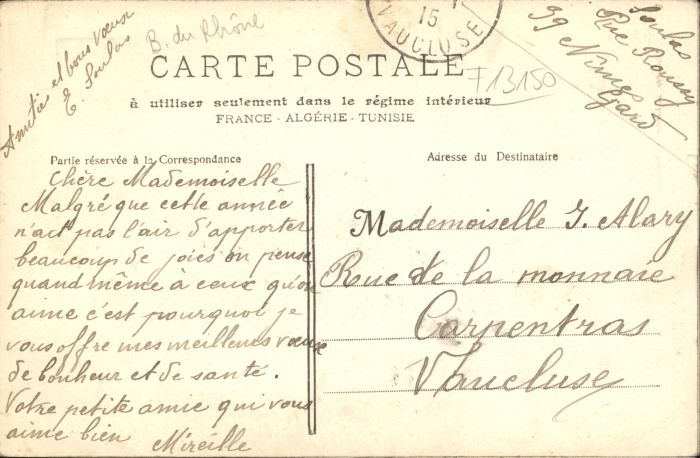 Amitiés et bons vœux
E. Soulas
B. du Rhône
15
VAUCLUSE
Soulas
Rue Roussy
39 Nimes
Gard
CARTE POSTALE
F 13150
à utiliser seulement dans le régime intérieur
FRANCE - ALGÉRIE - TUNISIE
Partie réservée à la Correspondance
Chère Mademoiselle
Malgré que cette année
n'aet pas l'air d'apporter
beaucoup de joies on pense
quand même à ceux qu'on
aime c'est pourquoi je
vous offre mes meilleurs vœux
de bonheur et de santé.
Votre petite amie qui vous
aime bien
Mireille
Adresse du Destinataire
Mademoiselle J. Alary
Rue de la monnaie
Carpentras
Vaucluse